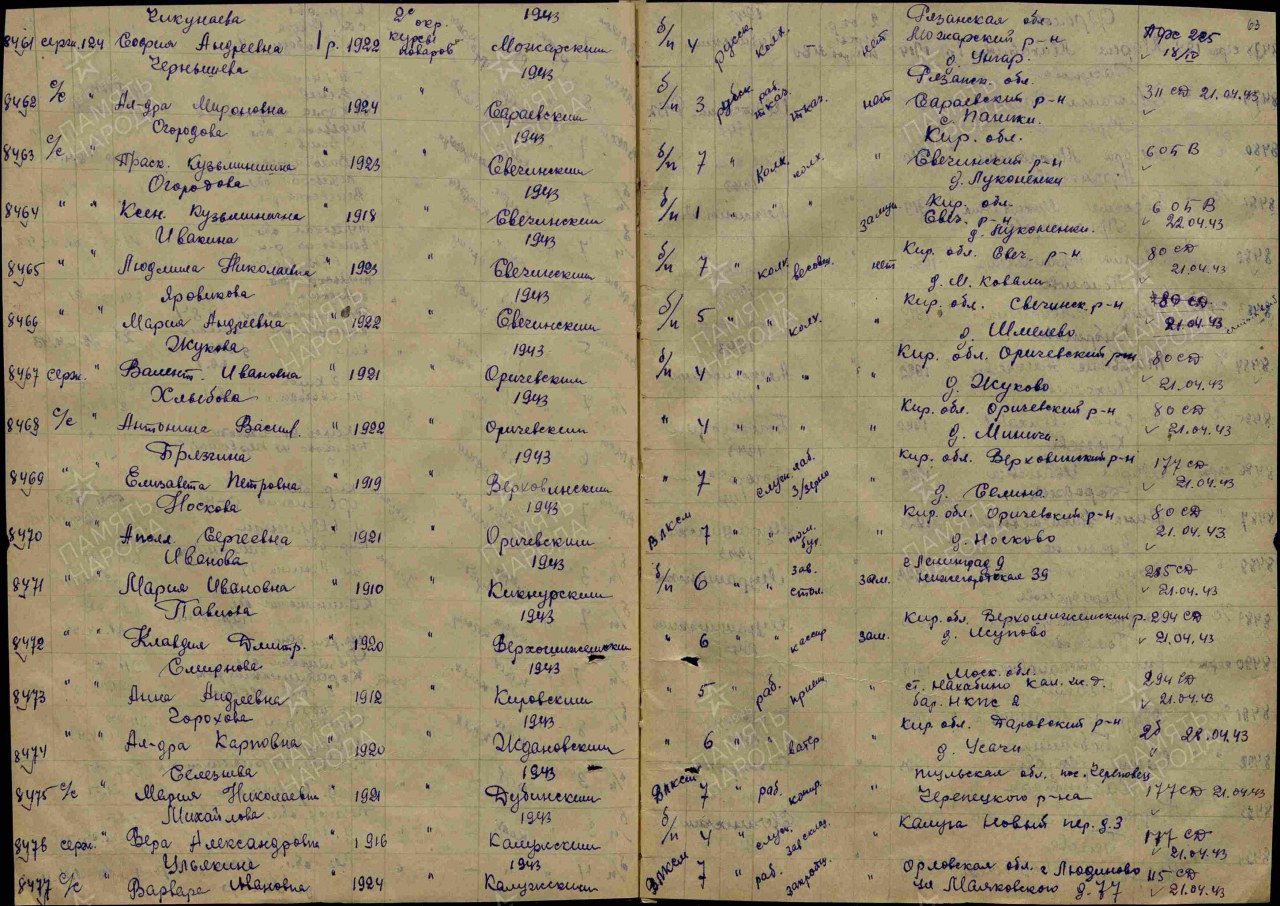 63
Чикунаева 2е окр. 1943 б/п Рязанская обл.
8461 серж. 124 София Андреевна 1 р. 1922 курсы поваров Можарским 4 русск. колх. нет Можарский р-н д. Унгар. ПФС 285 18/IV
Чернышева 1943 б/п Рязанск. обл.
8462 с/с " Ал-дра Мироновна " 1924 " Сараевским 3 русск. раб. ткач. ткач. нет Сараевский р-н с. Пашки. 311 СД 21.04.43
Огородова 1943 б/п Кир. обл.
8463 с/с " Праск. Кузьминична " 1923 " Свечинским 7 " колх. колх. " Свечинский р-н д. Луконенки 605 В
Огородова 1943 б/п Кир. обл.
8464 " " Ксен. Кузьминична " 1918 " Свечинским 1 " " " замуж. Свеч. р-н д. Луконенки. 605 В 22.04.43
Ивакина 1943 б/п Кир. обл. Свеч. р-н 80 СД
8465 " " Людмила Николаевна " 1923 " Свечинским 7 " колх. весовщ. нет д. М. Ковали 21.04.43
Яровикова 1943 б/п Кир. обл. Свечинск. р-н 80 СД
8466 " " Мария Андреевна " 1922 " Свечинским 5 " " колх. " д. Шмелево 21.04.43
Жукова 1943 б/п Кир. обл. Оричевский р-н 80 СД
8467 серж. " Валент. Ивановна " 1921 " Оричевским 4 " " " " д. Жуково 21.04.43
Хлыбова 1943 Кир. обл. Оричевский р-н 80 СД
8468 с/с " Антонина Васил. " 1922 " Оричевским " 4 " " " " д. Миничи. 21.04.43
Брязгина 1943 Кир. обл. Верховинский р-н 177 СД
8469 " " Елизавета Петровна " 1919 " Верховинским " 7 " служ. лаб. з/зерно " д. Селина 21.04.43
Носкова 1943 Кир. обл. Оричевский р-н 80 СД
8470 " " Апол. Сергеевна " 1921 " Оричевским ВЛКСМ 7 " " пом. бух. " д. Носково 21.04.43
Иванова 1943 б/п г. Ленинград
8471 " " Мария Ивановна " 1910 " Кикнурским 6 " " зав. стол. зам. Нижегородская 39 285 СД 21.04.43
Павлова 1943 Кир. обл. Верхошижемский р. 294 СД
8472 " " Клавдия Дмитр. " 1920 " Верхошижемским " 6 " " кассир зам. д. Исупово 21.04.43
Смирнова 1943 Моск. обл.
8473 " " Анна Андреевна " 1912 " Кировским " 5 " раб. " ст. Нахабино Кал. ж.д. бар. НКПС 2 294 СД 21.04.43
Горохова 1943 Кир. обл. р-н
8474 " " Ал-дра Карповна " 1920 " Ждановским " 6 " " " д. Усачи 2б 28.04.43
Селезнева 1943 Тульская обл. пос. Череповец
8475 с/с " Мария Николаевн " 1921 " Дубинским ВЛКСМ 7 " раб. " Черепецкого р-на 177 СД 21.04.43
Михайлова 1943 б/п Калуга Новый пер. д. 3
8476 серж. " Вера Александровн " 1916 " Калужским 4 " служ. зав. склад. " 177 СД 21.04.43
Ульякина 1943 Орловская обл. г. Людиново 115 СД
8477 с/с " Варвара Ивановна " 1924 " Калужским ВЛКСМ 7 " раб. " ул. Маяковского д. 77 21.04.43
ПАМЯТЬ НАРОДА